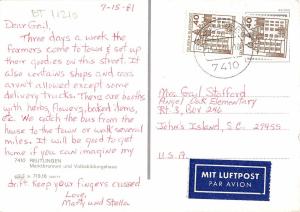 BT 11210
7-15-81
Dear Gail,
Three days a week the
farmers come to town & set up
their goodies on this street. It
also contains shops and cars
aren't allowed except some
delivery trucks. There are booths
with herbs, flowers, baked items,
etc. We catch the bus from the
house to the town or walk several
miles. It will be good to get
home if you can imagine my
7410 REUTLINGEN
Marktbrunnen und Volksbildungshaus
drift. Keep your fingers crossed
Love,
Marty and Stella
40
40
7410
Mrs. Gail Stafford
Angel Oak Elementary
Rt 3, Box 246
John's Island, S.C. 29455
U.S.A.
MIT LUFTPOST
PAR AVION